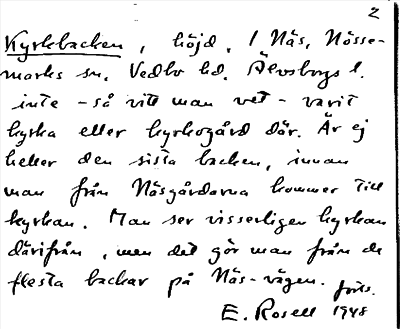 2
Kyrkbacken, höjd. I Näs, Nösse-
marks sn. Vedbo hd. Älvsborgs l.
inte - så vitt man vet - varit
kyrka eller kyrkogård där. Är ej
heller den sista backen, innan
man från Näsgårdarna kommer till
kyrkan. Man ser visserligen kyrkan
därifrån, men det gör man från de
flesta backar på Näs-vägen. forts.
E. Rosell 1948